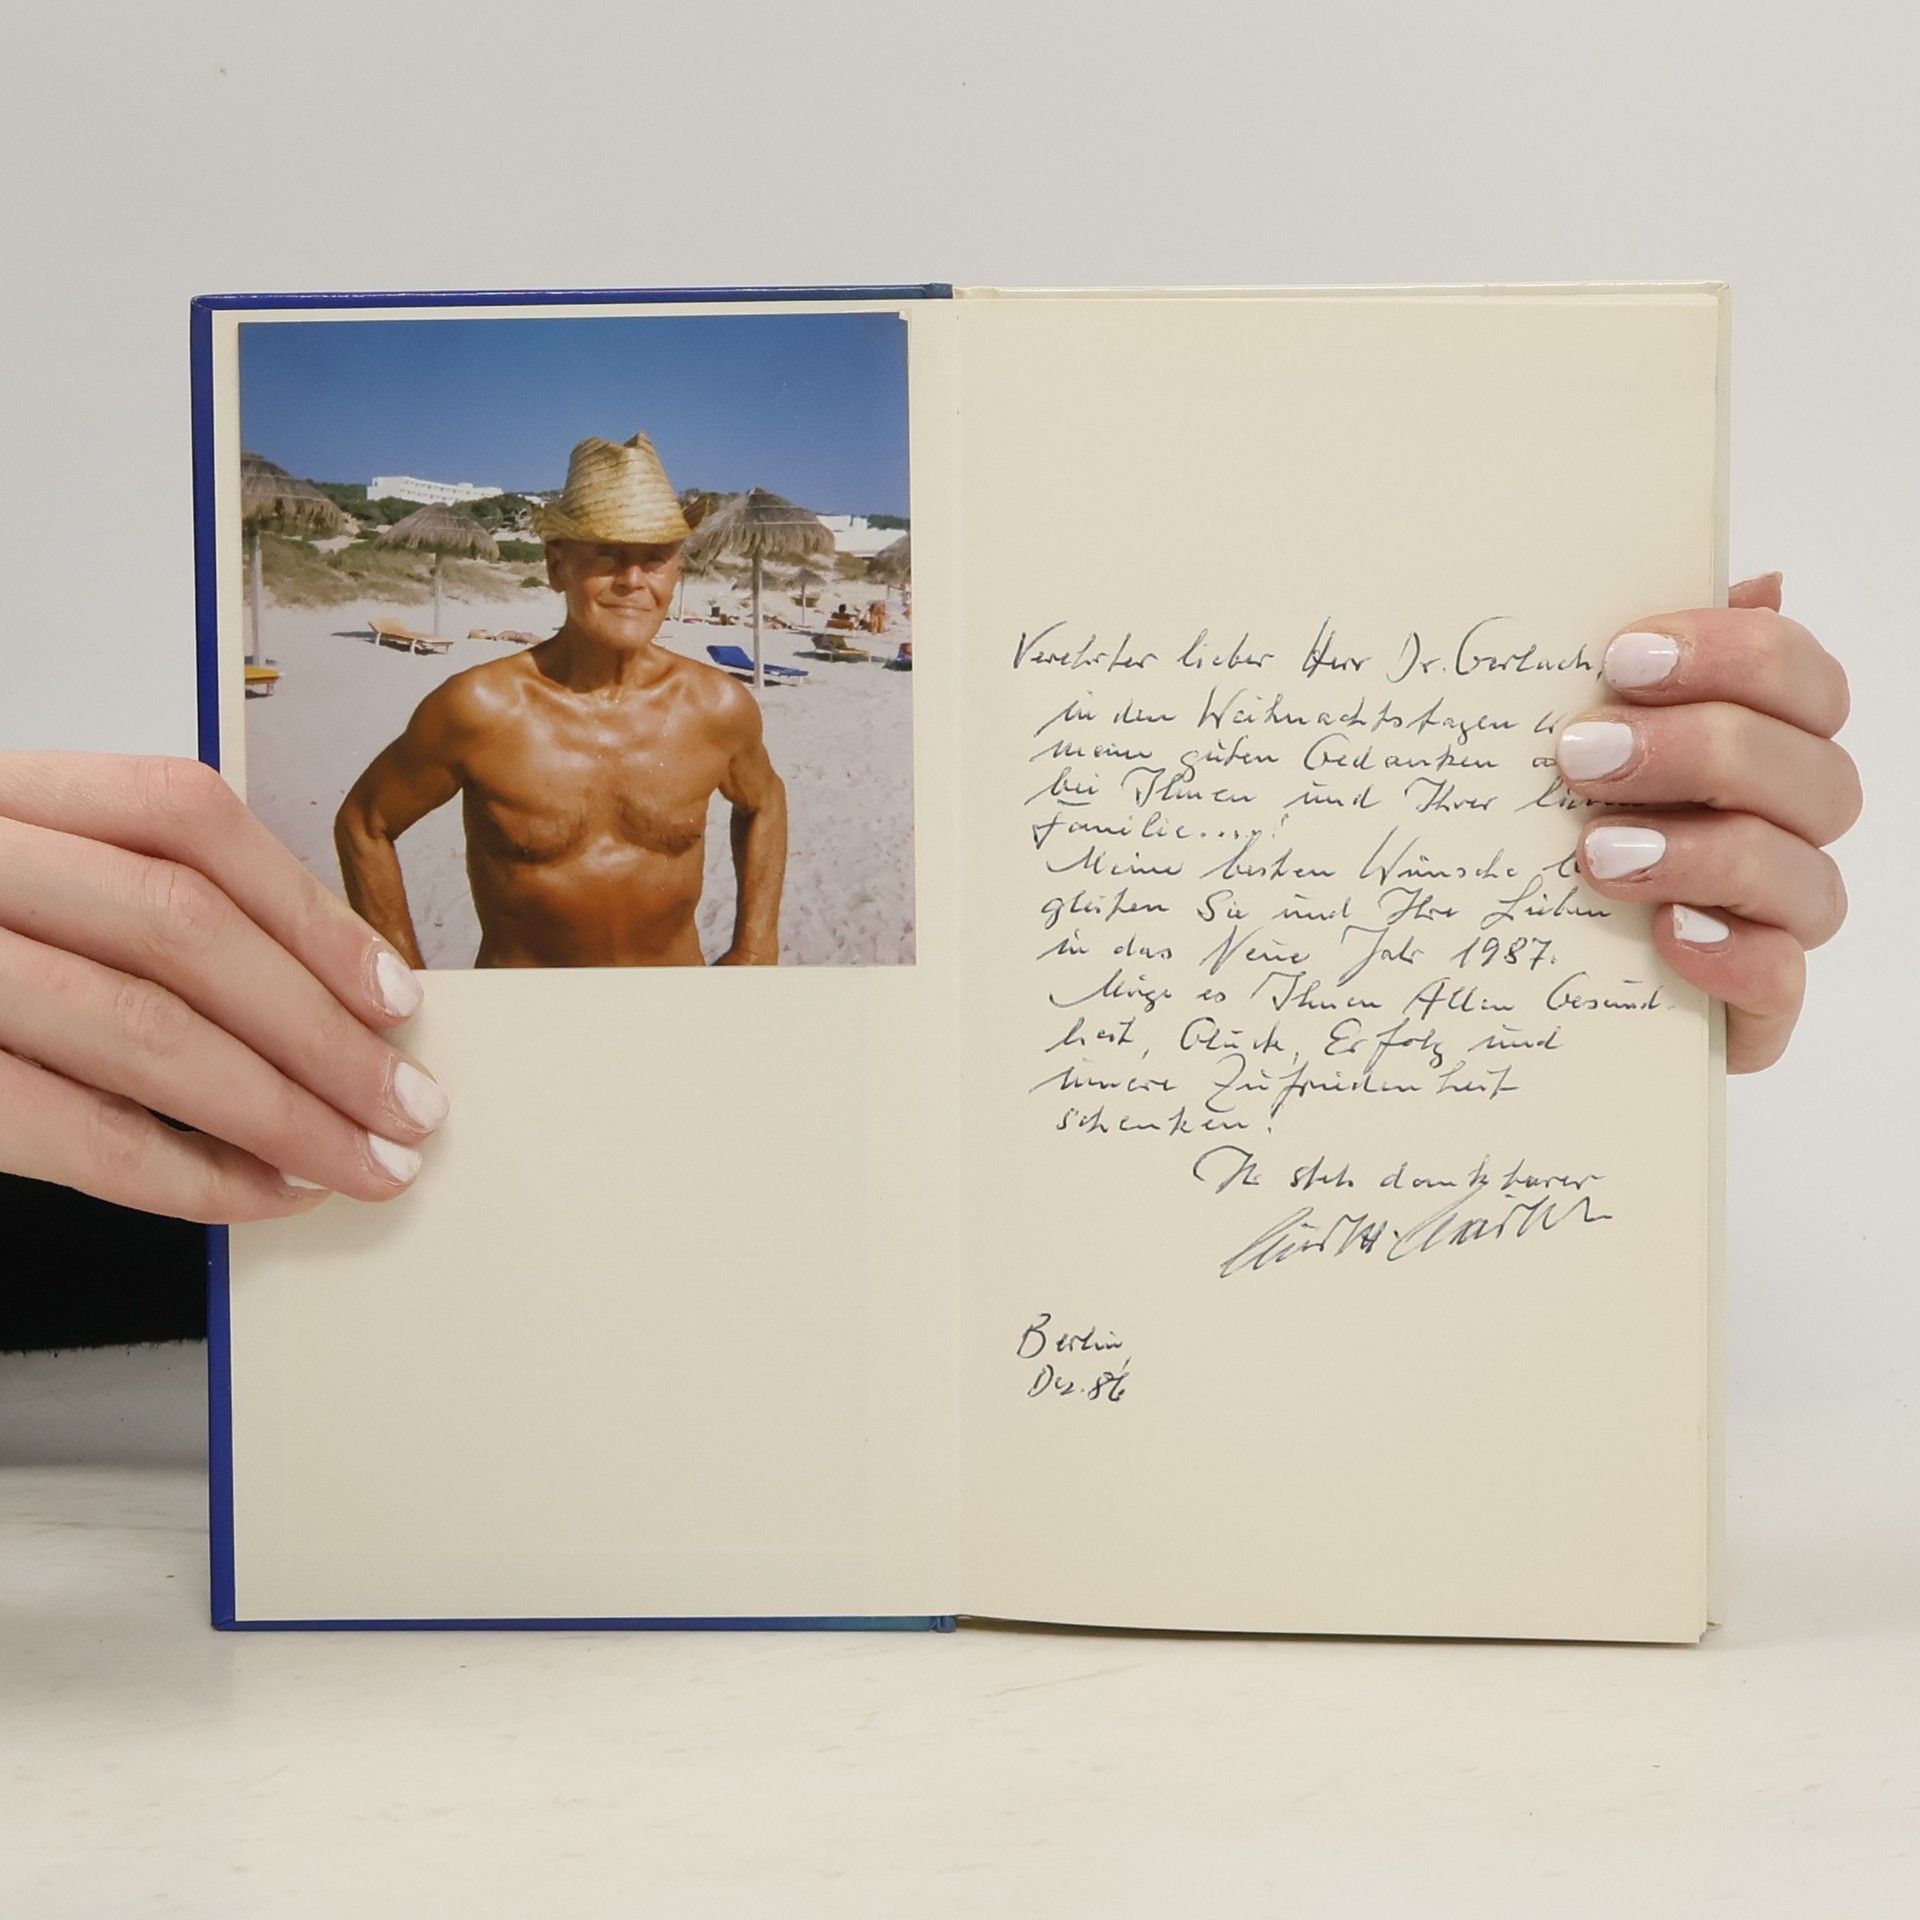 Verehrter lieber Herr Dr. Gerlach,
in den Weihnachtstagen
meine guten Gedanken
bei Ihnen und Ihrer
Familie....!
Meine besten Wünsche be
gleiten Sie und Ihre Lieben
in das Neue Jahr 1987.
Möge es Ihnen Allen Gesund-
heit, Glück, Erfolg und
innere Zufriedenheit
schenken!
Ihr stets dankbarer
Berlin,
Dez. 86